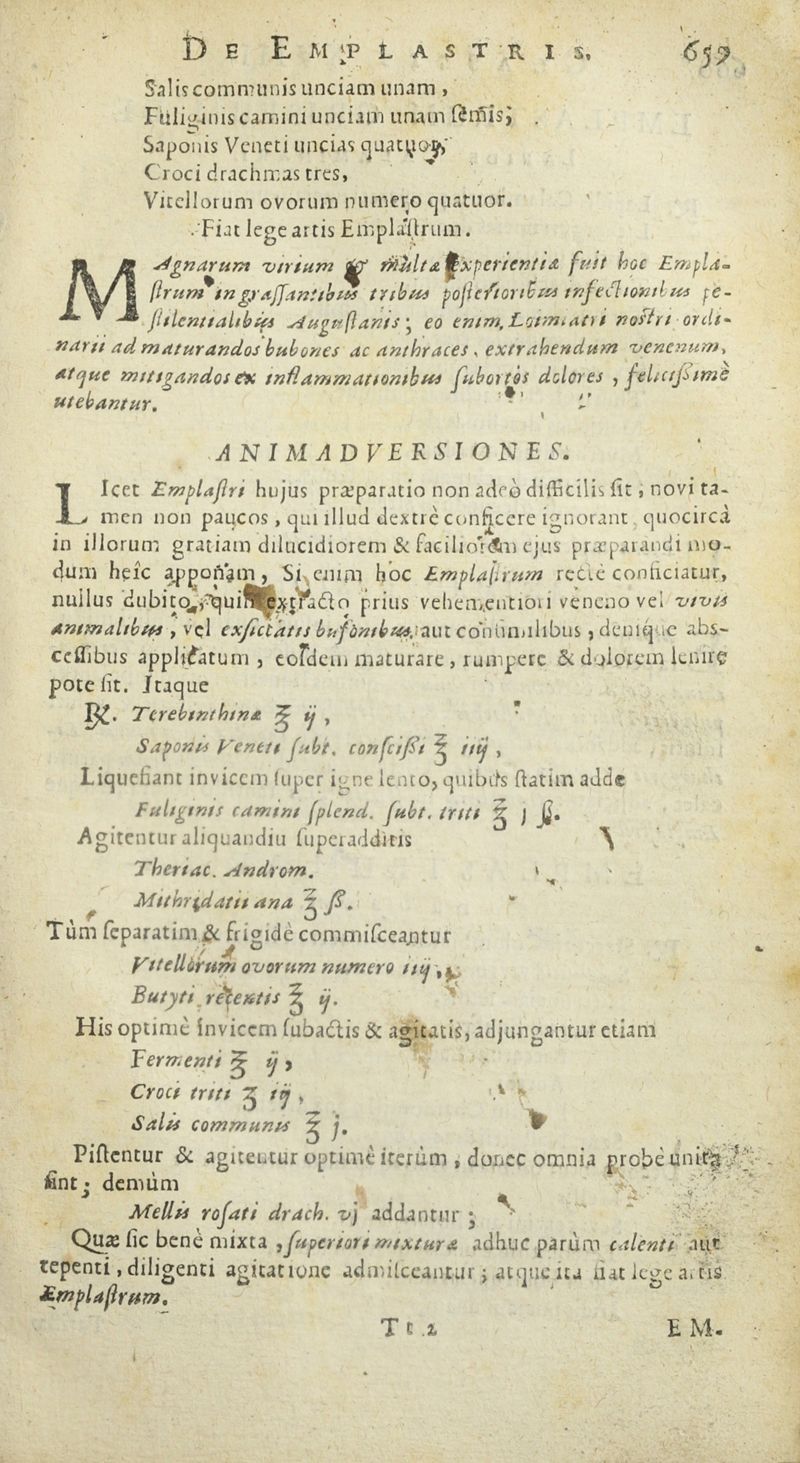 DE EMPLASTRIS. 659
Salis communis unciam unam,
Fuliginis camini unciam unam semis;
Saponis Veneti uncias quatuor,
Croci drachmas tres,
Vitellorum ovorum numero quatuor.
Fiat lege artis Emplastrum.
MAgnarum virium & multæ experientiæ fuit hoc Empla-
strum in grassantibus tribus posterioribus infectionibus pe-
stilentialibus Augustanis; eo enim, Loimiatri nostri ordi-
narii ad maturandos bubones ac anthraces, extrahendum venenum,
atque mitigandos ex inflammationibus subortos dolores, felicissimè
utebantur.
ANIMADVERSIONES.
LIcet Emplastri hujus præparatio non adeò difficilis sit; novi ta-
men non paucos, qui illud dextrè conficere ignorant, quocircà
in illorum gratiam dilucidiorem & faciliorem ejus præparandi mo-
dum heîc apponam, Si enim hoc Emplastrum rectè conficiatur,
nullus dubito, quin extracto prius vehementiori veneno vel vivis
animalibus, vel exsiccatis bufonibus, aut consimilibus, denique abs-
cessibus applicatum, eosdem maturare, rumpere & dolorem lenire
potesit. Itaque
℞. Terebinthinæ ℥ ij,
Saponis Veneti subt. conscissi ℥ iiij,
Liquefiant invicem super igne lento, quibus statim adde
Fuliginis camini splend. subt. triti ℥ j ß.
Agitentur aliquandiu superadditis
Theriac. Androm.
Mithridatii ana ℥ ß.
Tùm separatim & frigidè commisceantur
Vitellorum ovorum numero iiij,
Butyri recentis ℥ ij.
His optimè invicem subactis & agitatis, adjungantur etiam
Fermenti ℥ ij,
Croci triti ʒ iij,
Salis communis ℥ j.
Pistentur & agitentur optimè iterùm, donec omnia probè unita
sint; demùm
Mellis rosati drach. vj addantur;
Quæ sic benè mixta, superiori mixturæ adhuc parùm calenti aut
tepenti, diligenti agitatione admisceantur; atque ita fiat lege artis
Emplastrum.
Tt 2 EM-